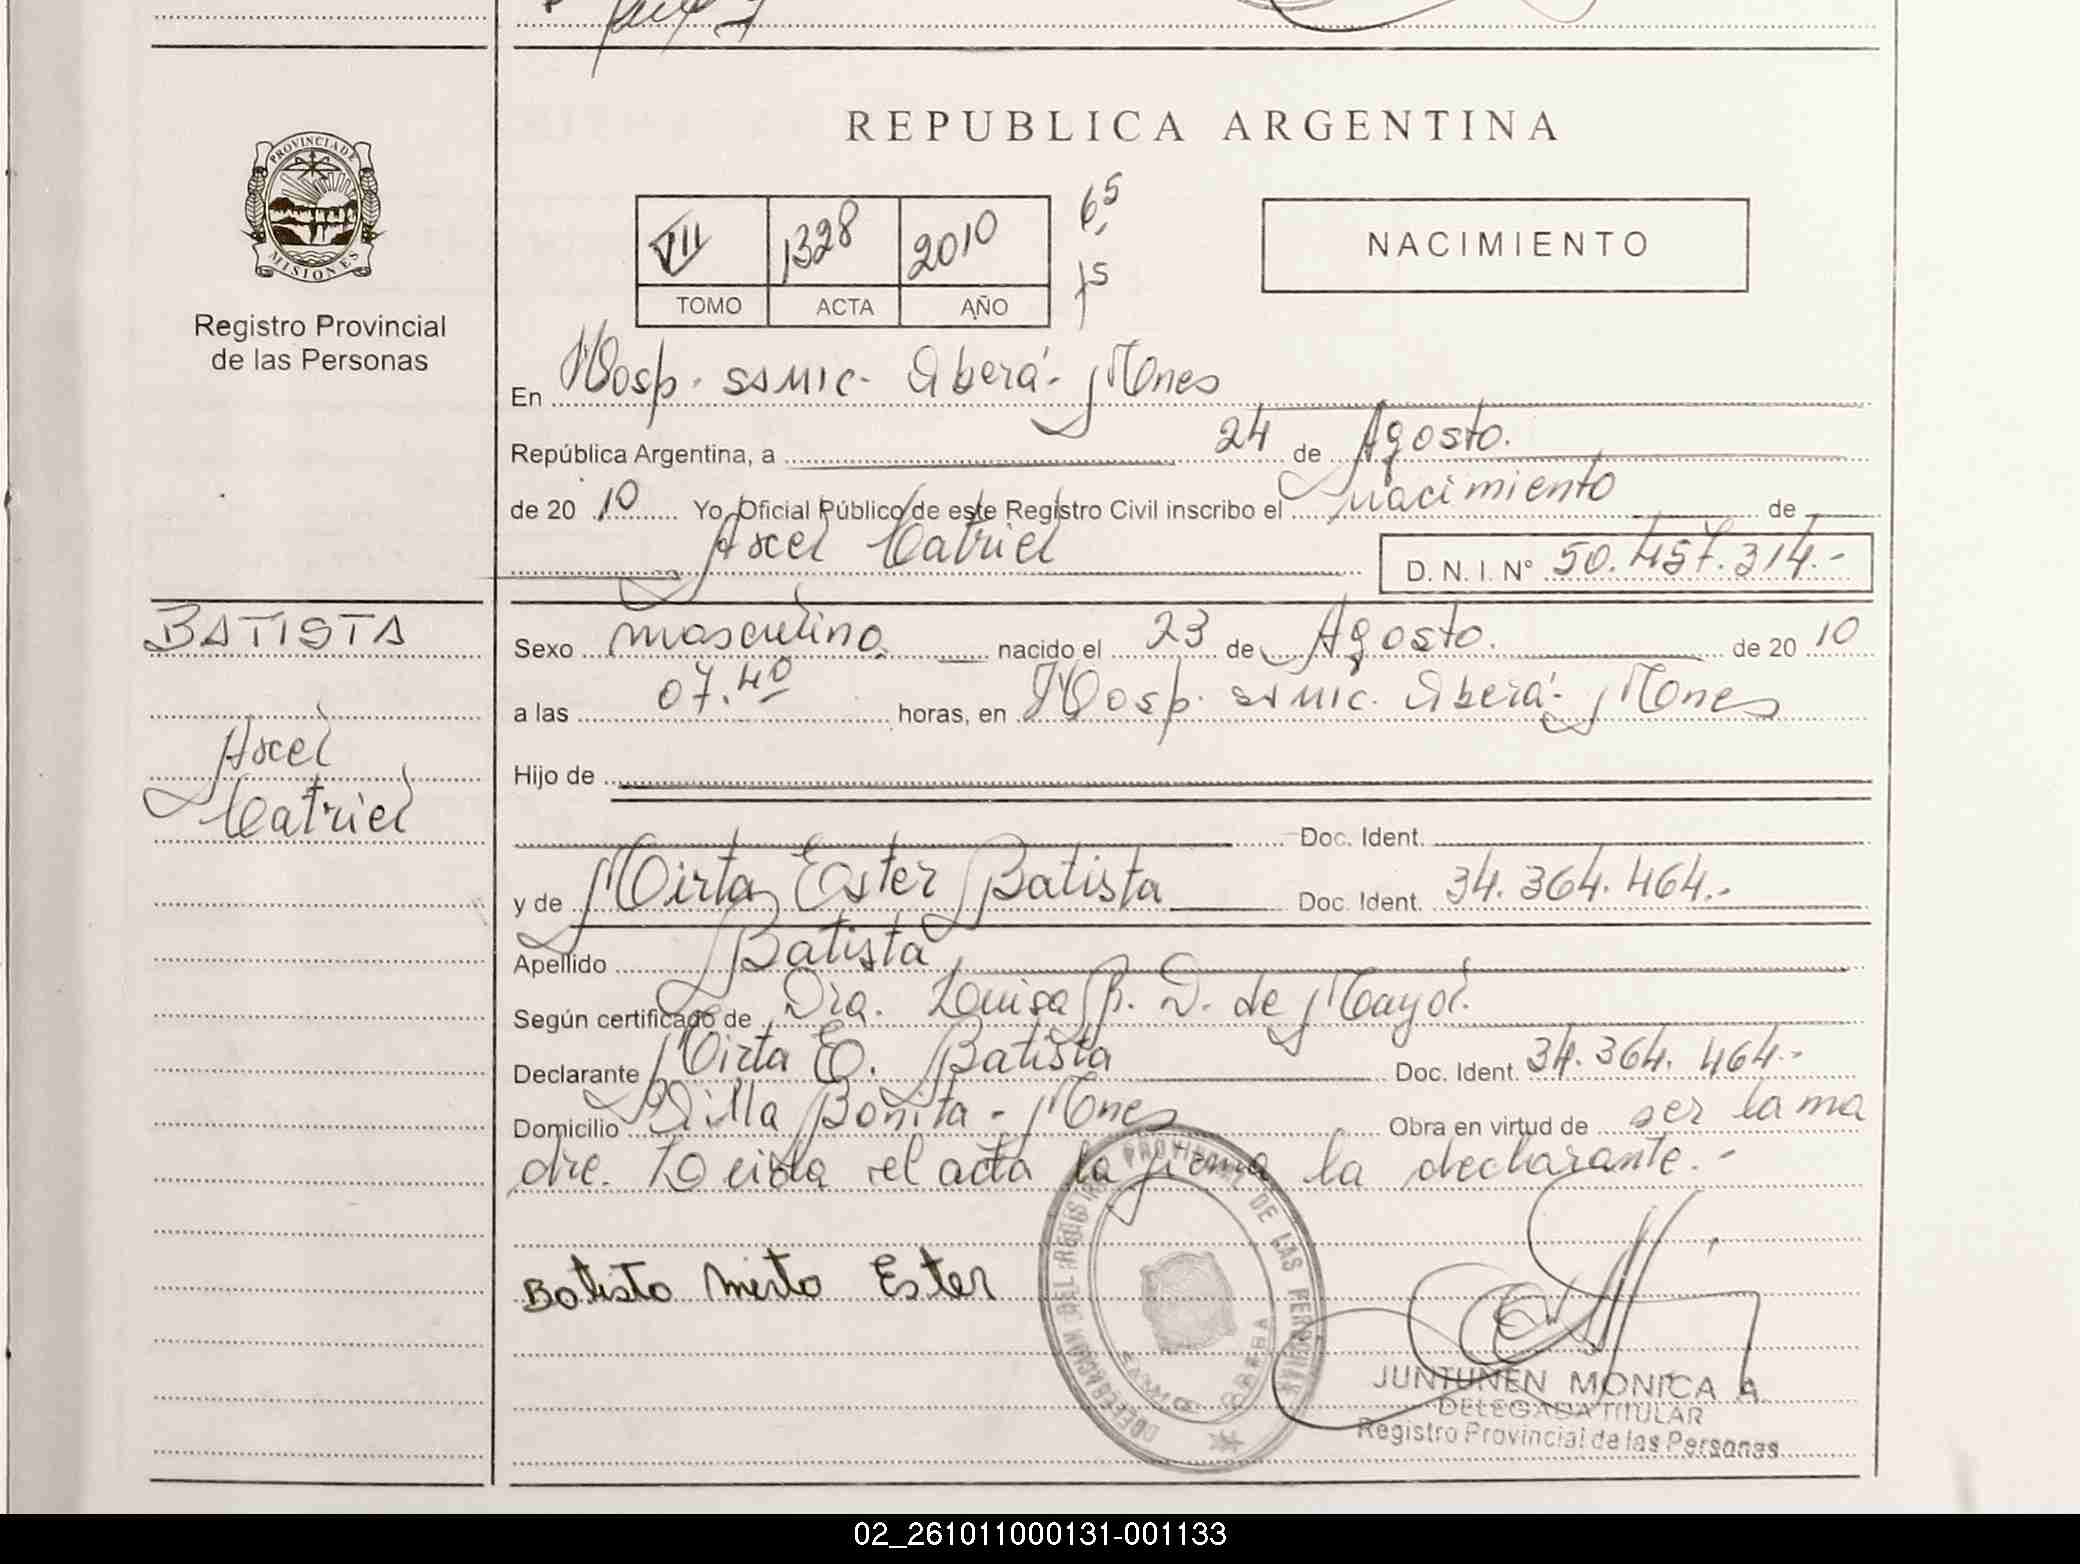 REPUBLICA ARGENTINA
PROVINCIA DE
MISIONES
Registro Provincial
de las Personas
VII 1328 2010
TOMO ACTA AÑO
65
75
NACIMIENTO
En Hosp. SAMIC. Oberá - Mnes
República Argentina, a 24 de Agosto.
de 20 10 Yo, Oficial Público de este Registro Civil inscribo el nacimiento de
Axcel Catriel D. N. I. N° 50.457.314.-
BATISTA
Axcel
Catriel
Sexo masculino nacido el 23 de Agosto. de 20 10
a las 07.40 horas, en Hosp. SAMIC. Oberá - Mnes
Hijo de
Doc. Ident.
y de Mirta Ester Batista Doc. Ident. 34.364.464.-
Apellido Batista
Según certificado de Dra. Louisa R. D. de Mayol.
Declarante Mirta E. Batista Doc. Ident. 34.364.464.-
Domicilio Villa Bonita - Mnes Obra en virtud de ser la ma
dre. Leida el acta la firma la declarante.-
Batista Mirta Ester
DELEGACION DEL REGISTRO PROVINCIAL DE LAS PERSONAS
JUNTUNEN MONICA A.
DELEGADA TITULAR
Registro Provincial de las Personas
02_261011000131-001133